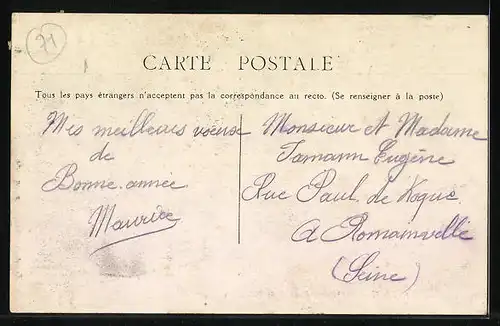 71
CARTE POSTALE
Tous les pays étrangers n'acceptent pas la correspondance au recto. (Se renseigner à la poste)
Mes meilleurs voeux
de
Bonne année
Maurice
Monsieur et Madame
Tamann Eugène
Rue Paul de Koque
A Romainville
(Seine)